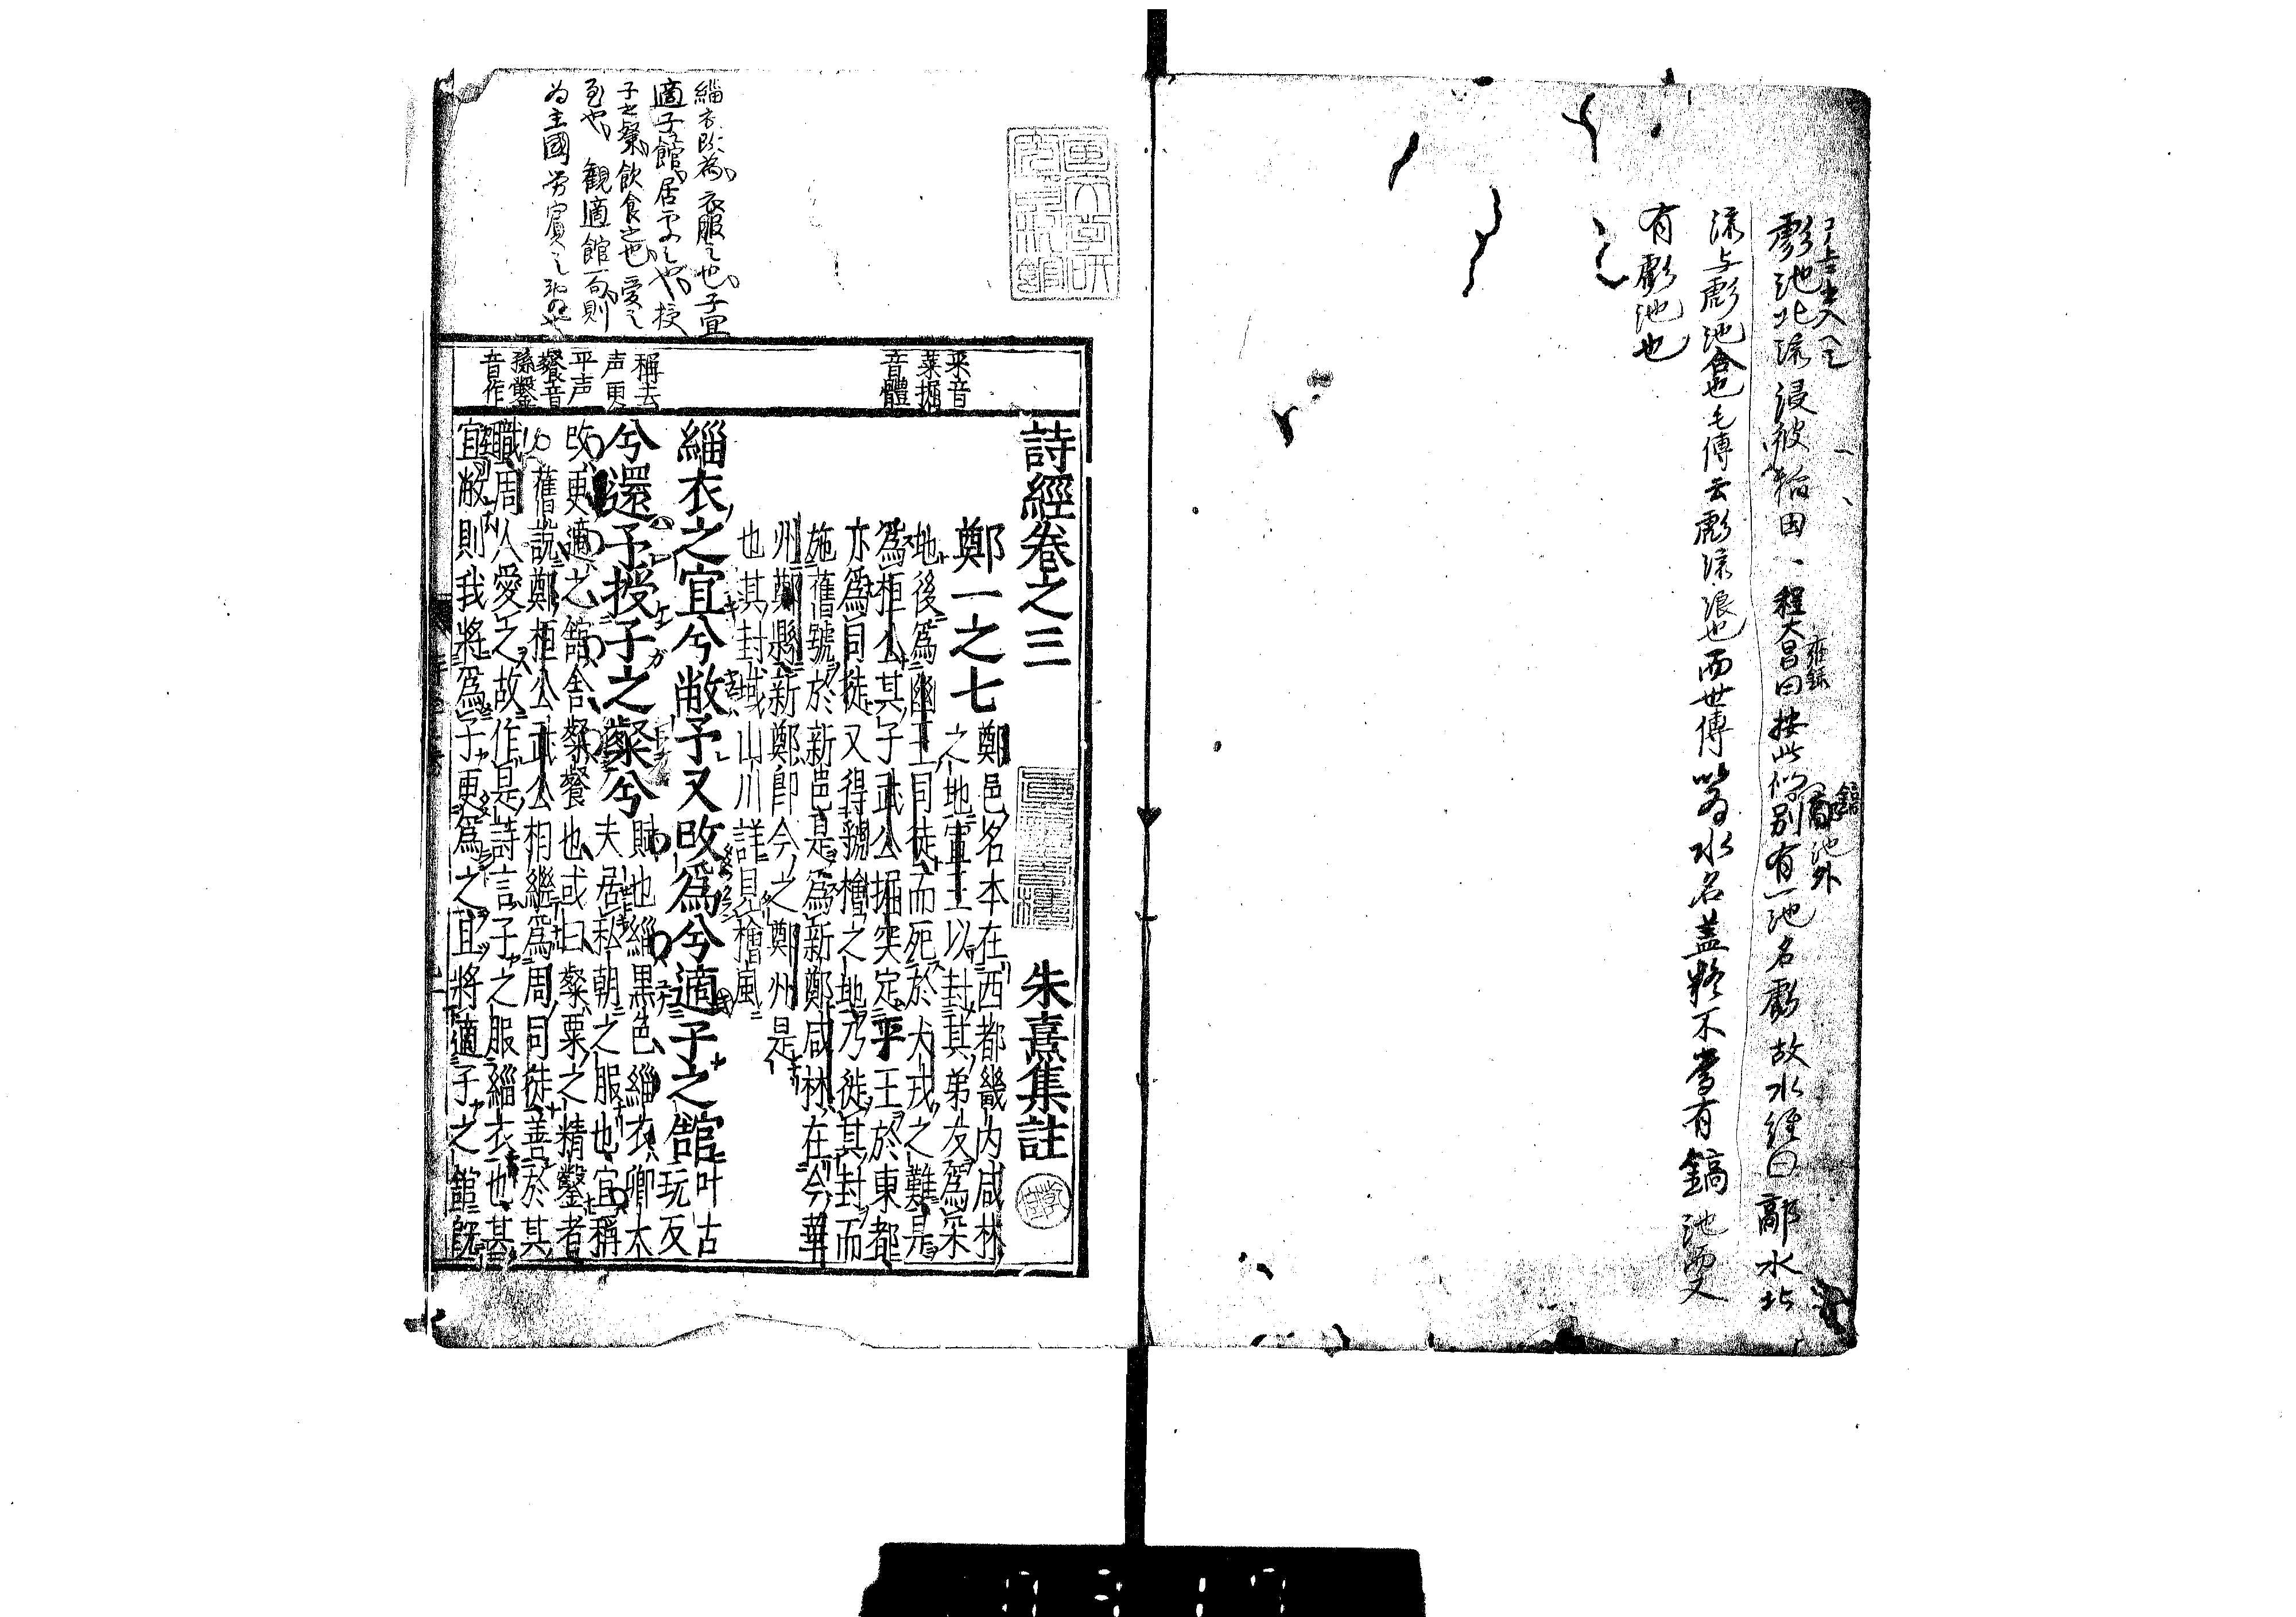 滮池北流浸彼稻田、程大昌曰按此似別有一池名滮故水経曰鄗水北
雍録
鎬
鄗池外
流与滮池合也毛傳云滮流浪也而世傳以為水名盖疑不當有鎬池而又
有滮池也
緇衣
衣服之也子宜
適子館居
授
子之粲飲食之也愛之
至也觀適館一句則
為主國労賓之
采音
菜掘
音體
稱去
声更
平声
餐音
孫鑿
音作
詩經卷之三
朱熹集註
鄭一之七
鄭邑名本在西都畿内咸林
之地宣王以封其弟友爲采
地後爲幽王司徒而死於犬戎之難是
爲桓公其子武公掘突定平王於東都
亦爲司徒又得虢檜之地乃徙其封而
施舊號於新邑是爲新鄭咸林在今華
州鄭縣新鄭卽今之鄭州是
也其封域山川詳見檜風
緇衣之宜兮敝予又攺爲兮適子之館
叶古
玩反
兮還予授子之粲兮
賦也緇黒色緇衣卿大
夫居私朝之服也宜稱
攺更適之館舎粲餐也或曰粲粟之精鑿者
舊說鄭桓公武公相繼爲周司徒善於其
職周人愛之故作是詩言子之服緇衣也甚
宜敝則我將爲子更爲之且將適子之館既